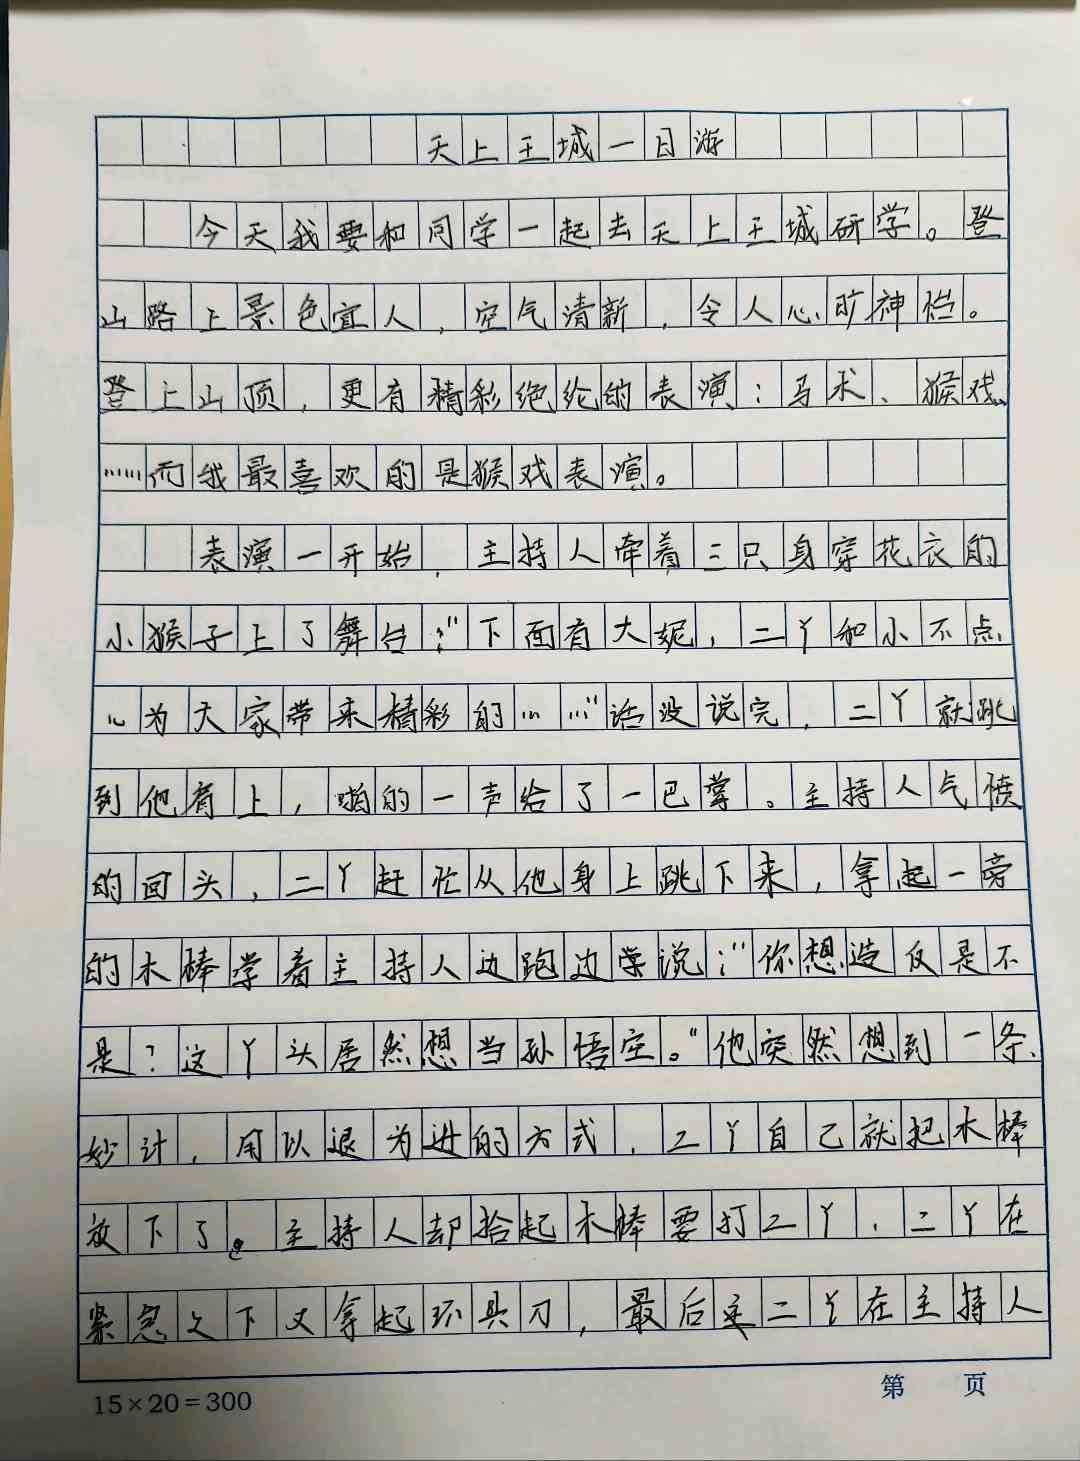 天上王城一日游
今天我要和同学一起去天上王城研学。登
山路上景色宜人，空气清新，令人心旷神怡。
登上山顶，更有精彩绝纶的表演：马术、猴戏
……而我最喜欢的是猴戏表演。
表演一开始，主持人牵着三只身穿花衣的
小猴子上了舞台：“下面有大妮，二丫和小不点
儿为大家带来精彩的……”话没说完，二丫就跳
到他肩上，啪的一声给了一巴掌。主持人气愤
的回头，二丫赶忙从他身上跳下来，拿起一旁
的木棒学着主持人边跑边学说：“你想造反是不
是？这丫头居然想当孙悟空。”他突然想到一条
妙计，用以退为进的方式，二丫自己就把木棒
放下了。主持人却拾起木棒要打二丫，二丫在
紧急之下又拿起环具刀，最后是二丫在主持人
15×20=300
第 页